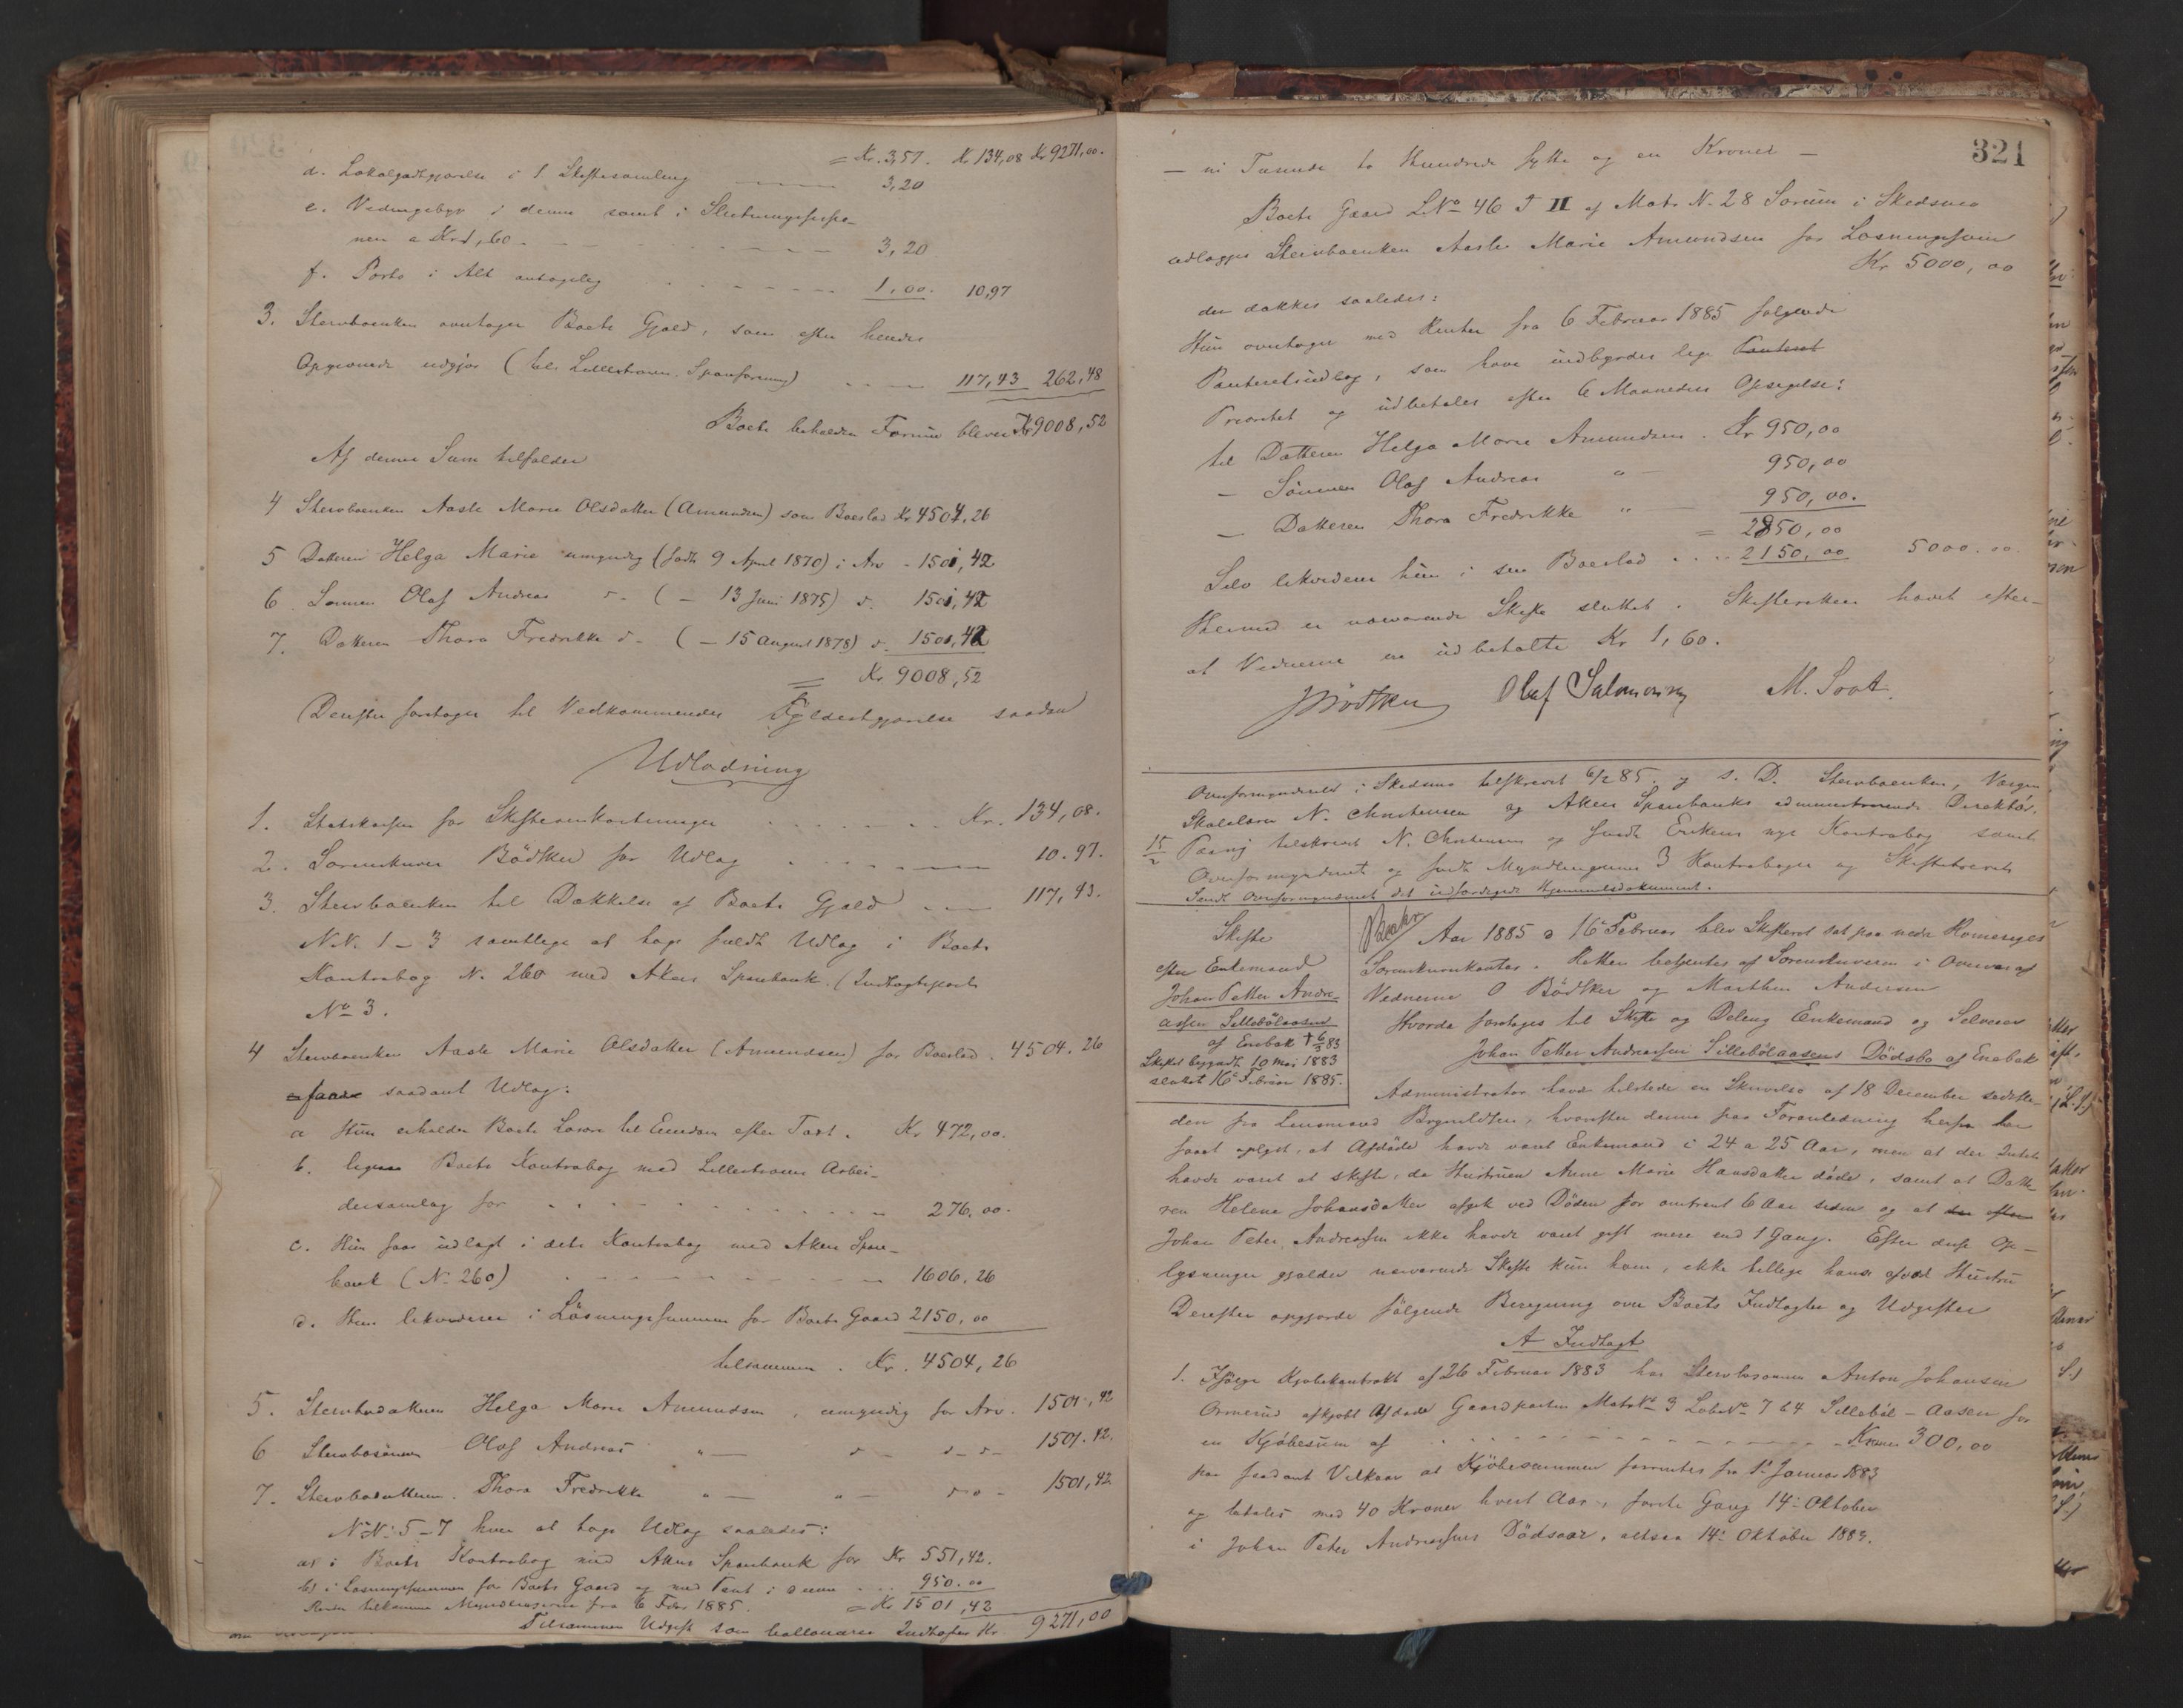 = Kr. 3,57. Kr 134,08 Kr 9271,00.
d. Lokalgodtgjørelse i 1 Skiftesamling — 3,20
e. Vidnegebyr i denne samt i Slutningsforretnin
nen a Kr 1,60 - 3,20
f. Porto i Alt antagelig 1,00. 10,97
3. Stervboenken overtager Boets Gjæld, som efter hendes
Opgivende udgjør (til Lillestrøm Spareforening) 117,43 262,48
Boets beholdne Formue bliver Kr 9008,52
Af denne Sum tilfalder
4 Stervboenken Aaste Marie Olsdatter (Amundsen) som Boeslod Kr 4504,26
5 Datteren Helga Marie umyndig (født 9 April 1870) i Arv - 1501,42
6. Sønnen Olaf Andreas d- ( — 13 Juni 1875) d. 1501,42
7. Datteren Thora Fredrikke d- ( — 15 August 1878) d. 1501,42
= Kr. 9008,52
Derefter foretoges til Vedkommendes Fyldestgjørelse saadan
Udlodning
1. Statskassen for Skifteomkostninger Kr. 134,08.
2. Sorenskriver Bødtker for Udlæg 10.97.
3. Stervboenken til Dækkelse af Boets Gjæld 117,43.
N.N. 1–3 samtlige at tage fuldt Udlæg i Boets
Kontrabog N. 260 med Akers Sparebank. (Indtægtspost
No 3.
4 Stervboenken Aaste Marie Olsdatter (Amundsen) for Boeslod. 4504.26
faar saadant Udlæg:
a Hun erholder Boets Løsøre til Eiendom efter Taxt. Kr 472,00.
b. ligesaa Boets Kontrabog med Lillestrøms Arbei-
dersamlag for 276,00.
c. Hun faar udlagt i dets Kontrabog med Akers Spare-
bank (N. 260) 1606,26
d. Hun likviderer i Løsningssummen for Boets Gaard 2150,00
tilsammen. Kr. 4504,26
5. Stervbodatteren Helga Marie Amundsen, umyndig for Arv. 1501,42
6 Stervbosønnen Olaf Andreas " — d – d – d – 1501.42.
7. Stervbodatteren Thora Fredrikke " — " — d – o – 1501,42
NN: 5–7 have at tage Udlæg saaledes:
a) i Boets Kontrabog med Akers Sparebank for Kr 551,42.
b) i Løsningssummen for Boets Gaard og med Pant i denne 950.00
Renter tilkomme Myndlingerne fra 6 Febr 1885. = Kr 1501,42
Tilsammen Udgift som ballancerer Indtægten Kr. 9271,00
321
— ni Tusinde to Hundrede sytti og en Kroner —
Boets Gaard LNo 46 J II af Matr N. 28 Sørum i Skedsmo
udlægges Stervboenken Aaste Marie Amundsen for Løsningssum
Kr 5000,00
der dækkes saaledes:
Hun overtager med Renter fra 6 Februar 1885 følgende
Panteretsudlæg, som have indbyrdes lige Panteret
Prioritet og udbetales efter 6 Maaneders Opsigelse:
til Datteren Helga Marie Amundsen. Kr 950,00
— Sønnen Olaf Andreas " — 950,00
— Datteren Thora Fredrikke " — 950,00.
= 2850,00
Selv likviderer hun i sin Boeslod 2150,00 5000.00.
Hermed er nærværende Skifte sluttet. Skifteretten havet efter-
at Vidnerne er udbetalte Kr 1,60.
JBødtker Olaf Salomonsen M. Svat
Overformynderiet i Skedsmo tilskrevet 6/2 85. og s. D. Stervboenken, Værgen
Skolelærer N. Christensen og Akers Sparebanks administrerende Direktør.
15/2 Paany tilskrevet N. Christensen og sendt Enkens nye Kontrabog samt
Overformynderiet og sendt Myndlingernes 3 Kontrabøger og Skiftebrevet
Sendt Overformynderiet det udfærdigede Hjemmelsdokument.
Skifte
efter Enkemand
Johan Petter Andre-
assen Sillebølaasen
af Enebak † 6/3 83
Skiftet begyndt 10 Mai 1883
sluttet 16 Februar 1885.
Aar 1885 d 16 Februar blev Skifteret sat paa nedre Romeriges
Sorenskriverkontor. Retten betjentes af Sorenskriveren i Overvær af
Vidnerne O Bødtker og Marthin Andersen
Hvorda foretoges til Skifte og Deling Enkemand og Selveier
Johan Petter Andreassen Sillebølaasens Dødsbo af Enebak
Administrator havde tilstede en Skrivelse af 18 December sidstle-
den fra Lensmand Brynildsen, hvorefter denne paa Foranledning herfra har
faaet oplyst, at Afdøde havde været Enkemand i 24 a 25 Aar, men at der Intet
havde været at skifte, da Hustruen Anne Marie Hansdatter døde, samt at Datte-
ren Helene Johansdatter afgik ved Døden for omtrent 6 Aar siden og at der efter
Johan Peter Andreassen ikke havde været gift mere end 1 Gang. Efter disse Op-
lysninger gjælder nærværende Skifte kun ham, ikke tillige hans afdød Hustru
Derefter opgjorde følgende Beregning over Boets Indtægter og Udgifter
A Indtægt
1. Ifølge Kjøbekontrakt af 26 Februar 1883 har Stervbosønnen Anton Johansen
Ormerud afkjøbt Afdøde Gaardparten MatrNo 9 LøbeNo 7 64 Sillebøl-Aasen for
en Kjøbesum af Kroner 300,00
paa saadant Vilkaar at Kjøbesummen forrentes fra 1. Januar 1883
og betales med 40 Kroner hvert Aar, første Gang 14. Oktober
i Johan Peter Andreassens Dødsaar, altsaa 14. Oktober 1883.